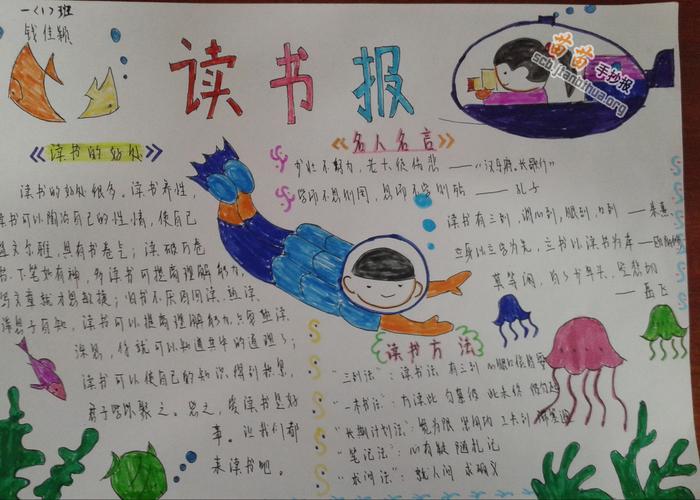 一(1)班
钱佳颖
读书报
苗苗手抄报
scb.jianbihua.org
《读书的好处》
读书的好处很多。读书养性,
读书可以陶冶自己的性情,使自己
温文尔雅,具有书卷气;读破万卷
书,下笔如有神,多读书可提高理解能力,
写文章就才思敏捷;旧书不厌百回读,熟读
深思子自知,读书可以提高理解能力,只要熟读
深思,你就可以知道其中的道理了;
读书可以使自己的知识得到积累,
君子学以聚之。总之,爱读书是好
事。让我们都
来读书吧。
《名人名言》
少壮不努力,老大徒伤悲 ——“汉乐府。长歌行”
——孔子
读书有三到,谓心到,眼到,口到 ——朱熹
立身以立学为先,立学以读书为本 ——欧阳修
莫等闲,白了少年头,空悲切
——岳飞
读书方法
“三到法”:读书法 有三到
“一本书法”:方读此 勿慕彼 此未终 彼勿起
“长期计划法”:宽为限 紧用功 工夫到 滞塞通
“笔记法”:心有疑 随札记
“求问法”:就人问 求确义